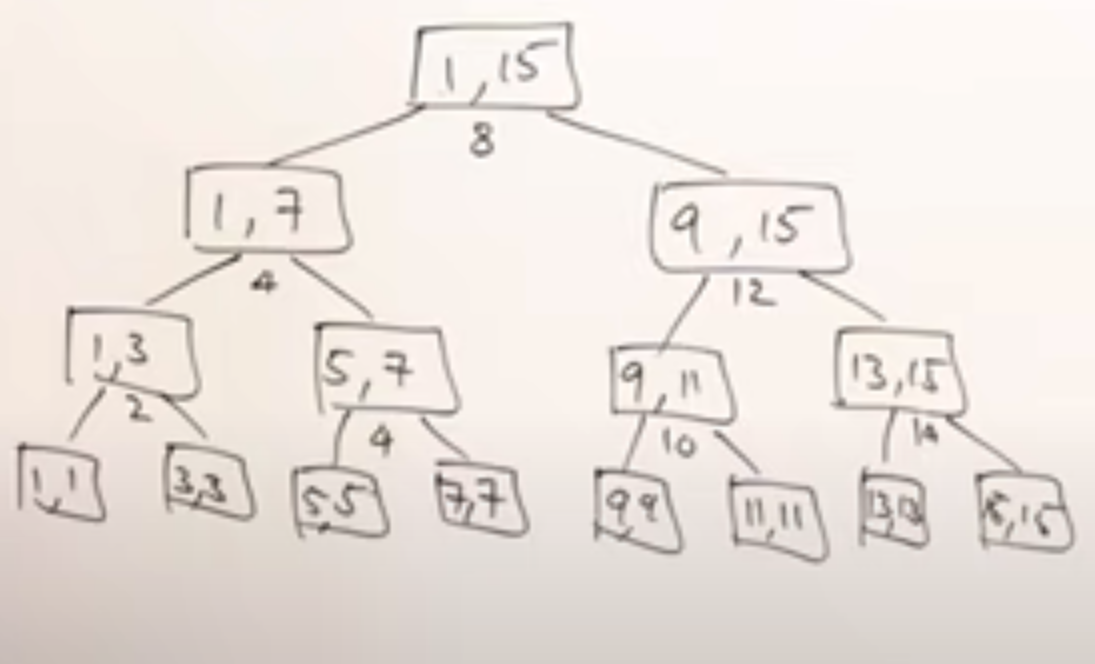 1,15
8
1,7
9,15
4
12
1,3
5,7
9,11
13,15
2
4
10
14
1,1
3,3
5,5
7,7
9,9
11,11
13,13
15,15